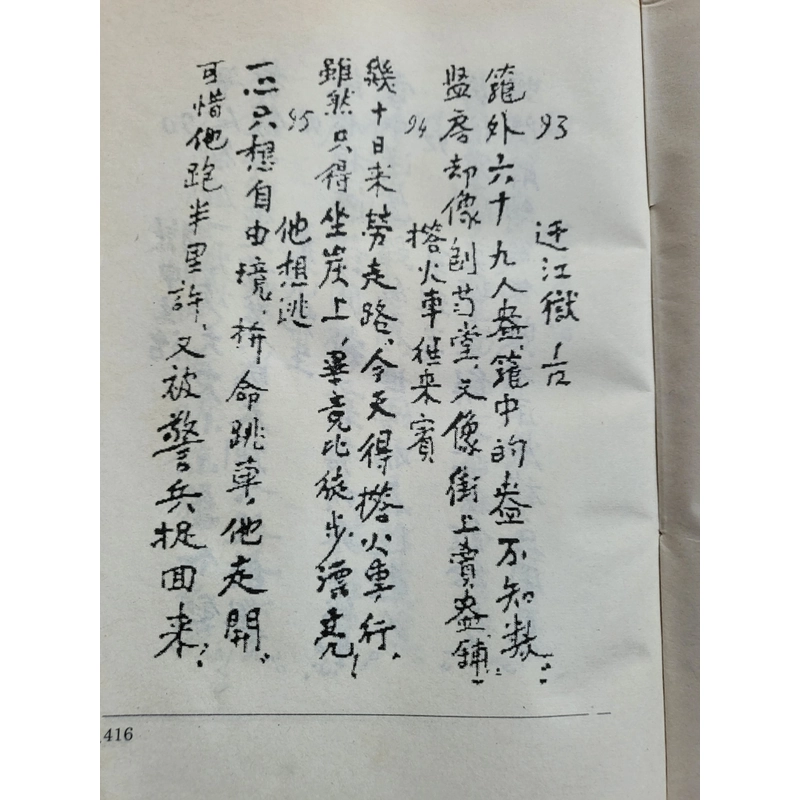 93
迁江獄
籠外六十九人盎,籠中的盎不知数;
监房却像刨芍堂,又像街上賣盎鋪!
94
搭火車往來賓
幾十日来勞走路,今天得搭火車行,
雖然只得坐炭上,畢竟比徒步漂亮!
95
他想逃
一心只想自由境,拚命跳車,他走開,
可惜他跑半里許,又被警兵捉回来!
416